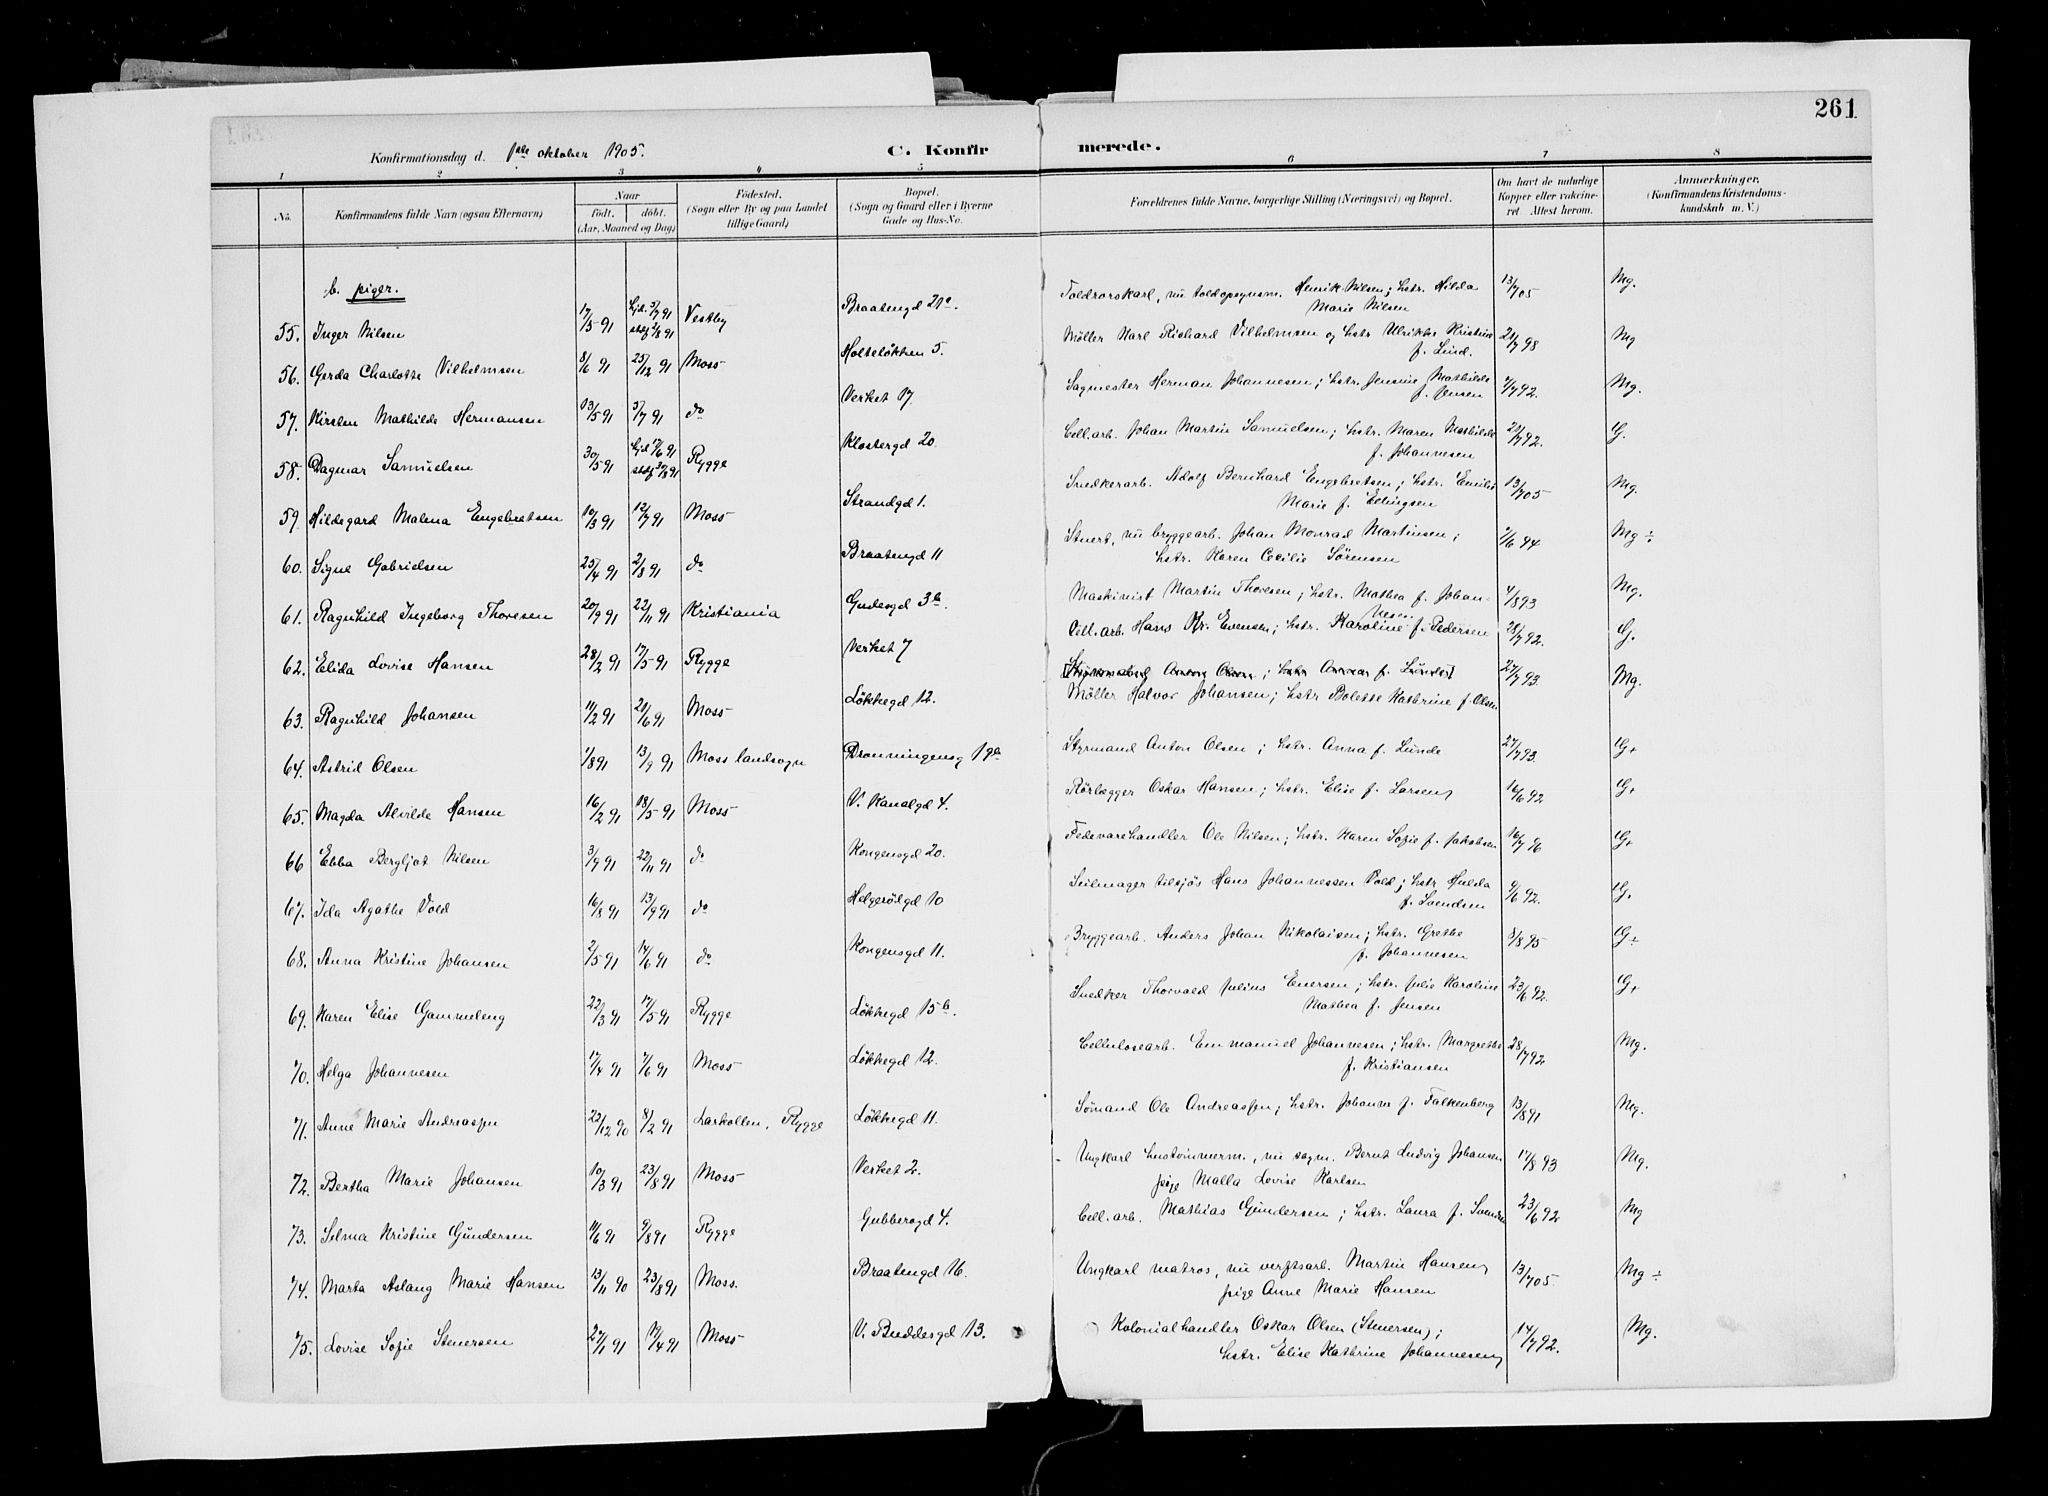 261
Konfirmationsdag d. 1ste oktober 1905.
C. Konfirmerede.
1 2 3 4 5 6 7 8
No.
Konfirmandens fulde Navn (ogsaa Efternavn)
Naar
født. døbt.
(Aar, Maaned og Dag)
Fødested.
(Sogn eller By og paa Landet
tillige Gaard)
Bopæl.
(Sogn og Gaard eller i Byerne
Gade og Hus-No.
Forældrenes fulde Navne, borgerlige Stilling (Næringsvei) og Bopæl.
Om havt de naturlige
Kopper eller vakcineret Attest herom.
Anmærkninger.
(Konfirmandens Kristendomskundskab m. V.)
b. piger.
55. Inger Nilsen 17/5 91 hjd. 5/7 91 stdf 2/8 91 Vestby Braatengd 21a. Toldrorskarl, nu toldopsynsm. Henrik Nilsen; hstr. Hilda Marie Nilsen 13/7 05 Mg.
56. Gerda Charlotte Vilhelmsen 8/6 91 25/12 91 Moss Holteløkken 5. Møller Karl Richard Vilhelmsen og hstr Ulrikke Kristine f. Lind. 21/7 98 Mg
57. Kirsten Mathilde Hermansen 13/5 91 5/7 91 do Verket 17. Sagmester Herman Johannesen; hstr. Jensine Mathilde f. Jensen 7/7 92. Mg.
58. Dagmar Samuelsen 30/5 91 hjd 17/6 91 stdf 30/8 91 Rygge Klostergd 20. Cell. arb. Johan Martin Samuelsen; hstr. Maren Mathilde f. Johannesen 21/7 92. G.
59. Hildegard Malena Engebretsen 10/3 91 12/7 91 Moss Strandgd 1. Snedkerarb. Adolf Bernhard Engebretsen; hstr. Emilie Marie f. Edingsen 13/7 05 Mg.
60. Signe Gabrielsen 25/4 91 2/8 91 do Braatengd 11 Stuert, nu bryggearb. Johan Monrad Martinsen; hstr. Karen Cecilie Sørensen 2/6 94 Mg ÷
61. Ragnhild Ingeborg Thoresen 20/9 91 22/11 91 Kristiania Gudesgd 3b. Maskinist Martin Thoresen; hstr. Mathea f. Johannesen 4/8 93 Mg.
62. Elida Lovise Hansen 28/2 91 17/5 91 Rygge Verket 7 Cell. arb. Hans Kr. Evensen; hstr. Karoline f. Pedersen 28/7 92. G.
[Styrmand Anton Olsen; hstr Anna f. Lunde] 27/7 93.
63. Ragnhild Johansen 11/2 91 21/6 91 Moss Løkkegd 12. Møller Halvor Johansen; hstr Bolette Kathrine f. Olsen Mg.
64. Astrid Olsen 1/8 91 13/9 91 Moss landsogn Dronningensg 19a Styrmand Anton Olsen; hstr. Anna f. Lunde 27/7 93. G+
65. Magda Alvilde Hansen 16/2 91 18/5 91 Moss V. Kanalgd 4. Rørlægger Oskar Hansen; hstr. Elise f. Larsen 16/6 92 G+
66 Ebba Bergljot Nilsen 3/9 91 22/11 91 do Kongensgd 20. Fedevarehandler Ole Nilsen; hstr. Karen Sofie f. Jakobsen 16/7 96 G+
67. Ida Agathe Vold 16/8 91 13/9 91 do Helgerødgd 10 Seilmager tilsjøs Hans Johannessen Vold; hstr Hulda f. Svendsen 9/6 92. G.
68. Anna Kristine Johansen 2/5 91 14/6 91 do Kongensgd 11. Bryggearb. Anders Johan Nikolaisen; hstr. Grethe f. Johannesen 3/8 95 G÷
69. Karen Elise Gammeleng 22/3 91 17/5 91 Rygge Løkkegd 15b. Snedker Thorvald Julius Enersen; hstr. Julie Karoline Mathea f. Jensen 23/6 92. G+
70. Helga Johannesen 17/4 91 7/6 91 Moss Løkkegd 12. Cellulosearb. Emmanuel Johannesen; hstr. Margrethe f. Kristiansen 28/7 92 Mg.
71. Anne Marie Andreassen 22/12 90 8/2 91 Larkollen, Rygge Løkkegd 11. Sømand Ole Andreassen; hstr. Johanne f. Falkenberg 13/8 91 Mg.
72. Bertha Marie Johansen 10/3 91 23/8 91 Moss Verket 2. Ungkarl hustømmerm., nu sagm. Bernt Ludvig Johansen pige Malla Lovise Karlsen 17/8 93 Mg.
73. Selma Kristine Gundersen 11/6 91 9/8 91 Rygge Gubberogd 4. Cell. arb. Mathias Gundersen; hstr. Laura f. Svendsen 23/6 92 Mg
74. Marta Aslaug Marie Hansen 13/11 90 23/8 91 Moss. Braatengd 16. Ungkarl matros, nu verftsarb. Martin Hansen, pige Anne Marie Hansen 13/7 05 Mg ÷
75. Lovise Sofie Stenersen 27/1 91 19/4 91 Moss V. Buddesgd 13. Kolonialhandler Oskar Olsen (Stenersen); hstr. Elise Kathrine Johannesen 14/7 92. Mg.